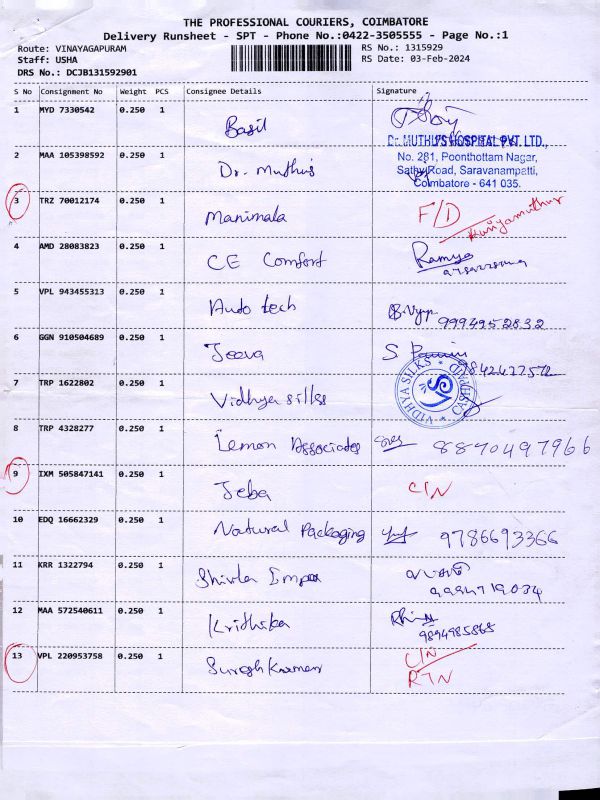 THE PROFESSIONAL COURIERS, COIMBATORE
Delivery Runsheet - SPT - Phone No.:0422-3505555 - Page No.:1
Route: VINAYAGAPURAM
Staff: USHA
DRS No.: DCJB131592901
RS No.: 1315929
RS Date: 03-Feb-2024
S No Consignment No Weight PCS Consignee Details Signature
1 MYD 7330542 0.250 1 Basil
2 MAA 105398592 0.250 1 Dr. Muthu's
Dr. MUTHU'S HOSPITAL PVT. LTD.,
No. 281, Poonthottam Nagar,
Sathy Road, Saravanampatti,
Coimbatore - 641 035.
3 TRZ 70012174 0.250 1 Manimala F/D
4 AMD 28083823 0.250 1 CE Comfort Ramya
5 VPL 943455313 0.250 1 Auto tech 9994952832
6 GGN 910504689 0.250 1 Jeeva S
7 TRP 1622802 0.250 1 Vidhya silks
VIDHYA SILKS
8 TRP 4328277 0.250 1 Lemon Associates 8870497966
9 IXM 505847141 0.250 1 Jeba C/N
10 EDQ 16662329 0.250 1 Natural Packaging 9786693366
11 KRR 1322794 0.250 1
12 MAA 572540611 0.250 1 Krithika 9894985865
13 VPL 220953758 0.250 1 Suresh Kumar C/N
RTN